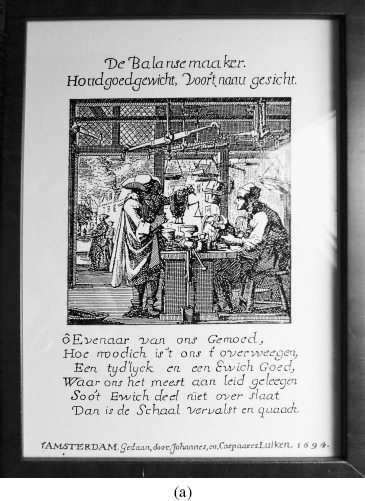 De Balansemaaker.
Houd goed gewicht, Voor't naau gesicht.
ô Evenaar van ons Gemoed,
Hoe noodich is't ons t' overweegen,
Een tyd'lyck en een Ewich Goed,
Waar ons het meest aan leid geleegen
Soo't Ewich deel niet over slaat
Dan is de Schaal vervalst en quaadt.
t'AMSTERDAM. Gedaan, door, Johannes, en, Caspaares Luiken. 1694.
(a)